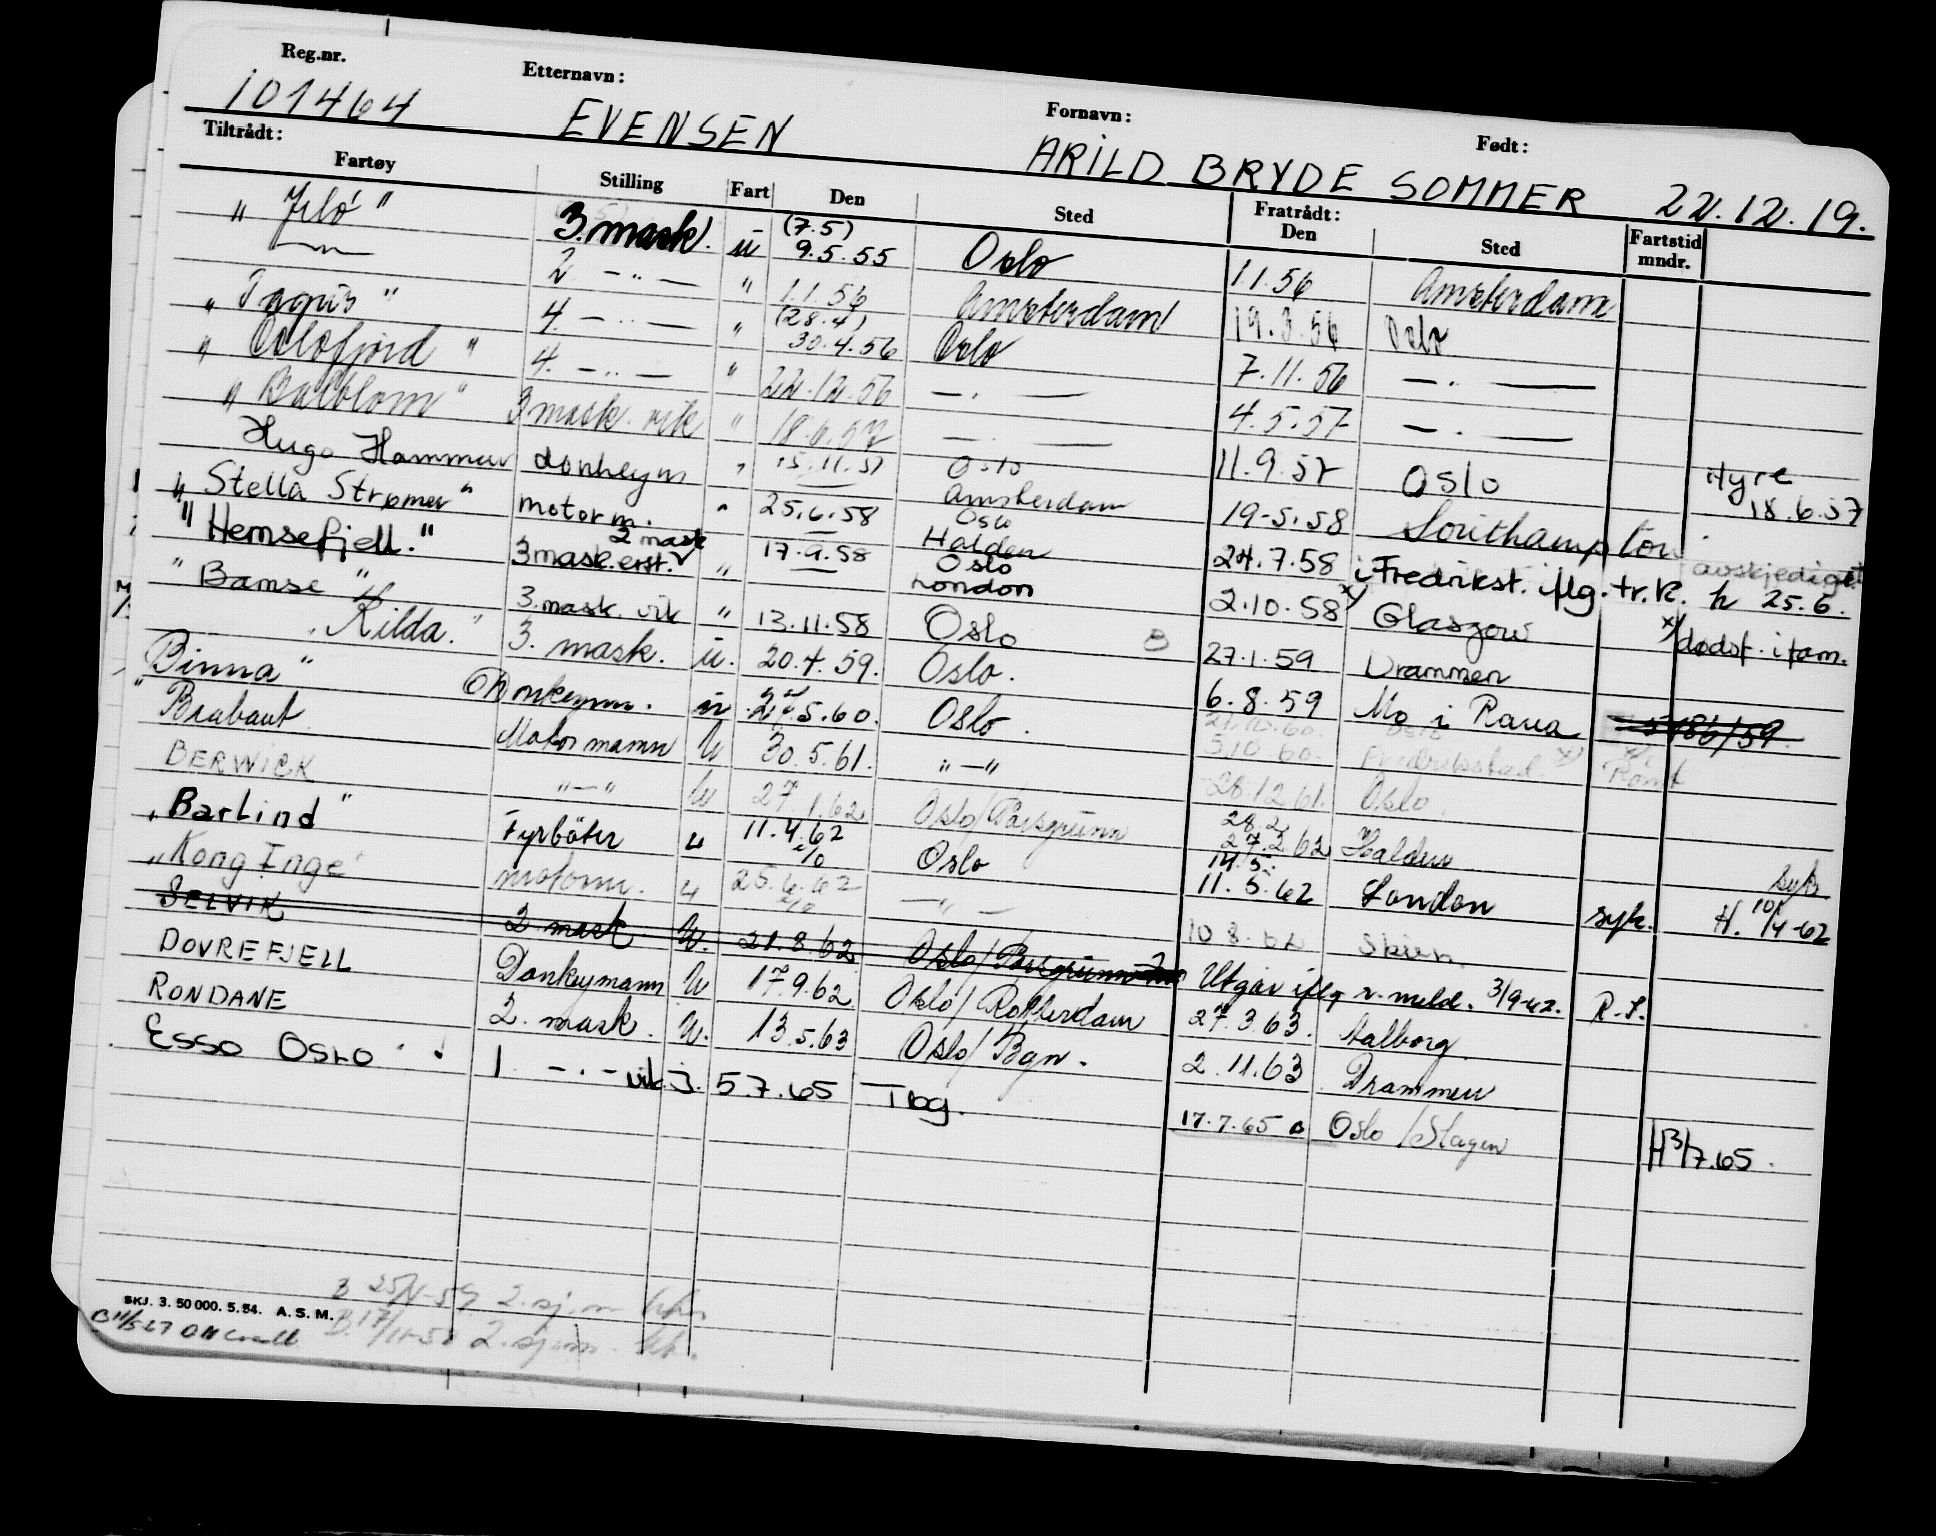 Reg.nr. Etternavn: Fornavn: Født:
101464 EVENSEN ARILD BRYDE SOMMER 22.12.19.
Tiltrådt: Fratrådt:
Fartøy Stilling Fart Den Sted Den Sted Fartstid mndr.
" " 3. mask. u (7.5) 9.5.55 Oslo 1.1.56 Amsterdam
—"— 2 — " — " 1.1.56 Amsterdam 19.3.56 Oslo
" " 4. — " — " (28.4) 30.4.56 Oslo 7.11.56 — " —
" Oslofjord " 4. — " — " 22.12.56 — " — 4.5.57 — " —
" Balblom " 3 mask. vik " 18.6.57 — " — 11.9.57 Oslo Hyre 18.6.57
Hugo Hammar donkeym " 15.11.57 Oslo Amsterdam 19-5.58 Southampton
" Stella Strømer " motorm. " 25.6.58 Oslo Halden 24.7.58 i Fredrikst. iflg. tr.k. avskjediget h 25.6.
" Hemsefjell. " 3 mask. erst. 2 mask " 17.9.58 Oslo London 2.10.58 x) Glasgow x) dødsf. i fam.
" Bamse " 3. mask. vik " 13.11.58 Oslo B 27.1.59 Drammen
" Rilda. " 3. mask. u. 20.4.59. Oslo. 6.8.59 Mo i Rana
Binna " Donkeym. u 2.5.60. Oslo. 5.10.60. Fredrikstad x)
" Brabant Motormann U 30.5.61. " — " 28.12.61. Oslo.
BERWICK " — " U 27.1.62 Oslo/Porsgrunn 28.2 27.2.62 Halden
" Barlind " Fyrbøter u 11.4.62 Oslo 14.5. 11.5.62 London syk. syk H. 10/4-62
" Kong Inge " motorm. u 25.6.62 — " — 10.8.62 Skien
SELVIK 2. mask U. 21.8.62 Oslo/Porsgrunn Utgår iflg r. meld. 3/9-62. R.S.
DOVREFJELL Donkeymann U 17.9.62 Oslo/Rotterdam 27.3.63. Aalborg
RONDANE 2. mask. U. 13.5.63 Oslo/Bgn. 2.11.63 Drammen
ESSO OSLO 1. — " — vik. I. 5.7.65 Tbg. 17.7.65 Oslo/Slagen H 3/7.65.
SKJ. 3. 50 000. 5.54. A.S.M.